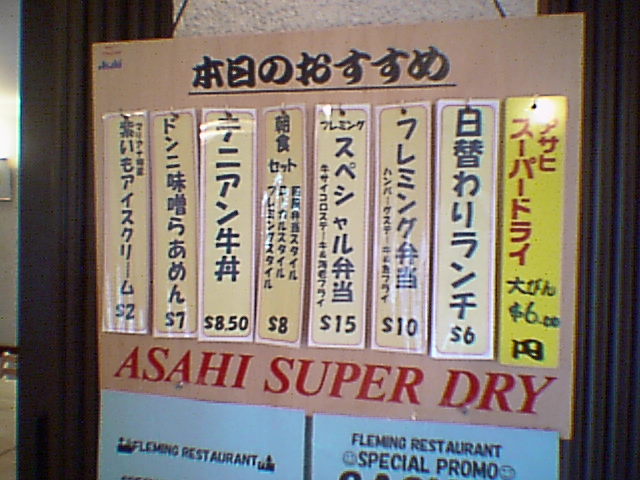 Asahi
本日のおすすめ
アサヒ
スーパードライ
大びん
$6.00
円
日替わりランチ
$6
フレミング弁当
ハンバーグステーキ&魚フライ
$10
フレミング
スペシャル弁当
牛サイコロステーキ&海老フライ
$15
朝食
セット
和風弁当スタイル
ローカルスタイル
フレミングスタイル
$8
テニアン牛丼
$8.50
ドンニ味噌らあめん
$7
紫いもアイスクリーム
$2
ASAHI SUPER DRY
FLEMING RESTAURANT
FLEMING RESTAURANT
SPECIAL PROMO